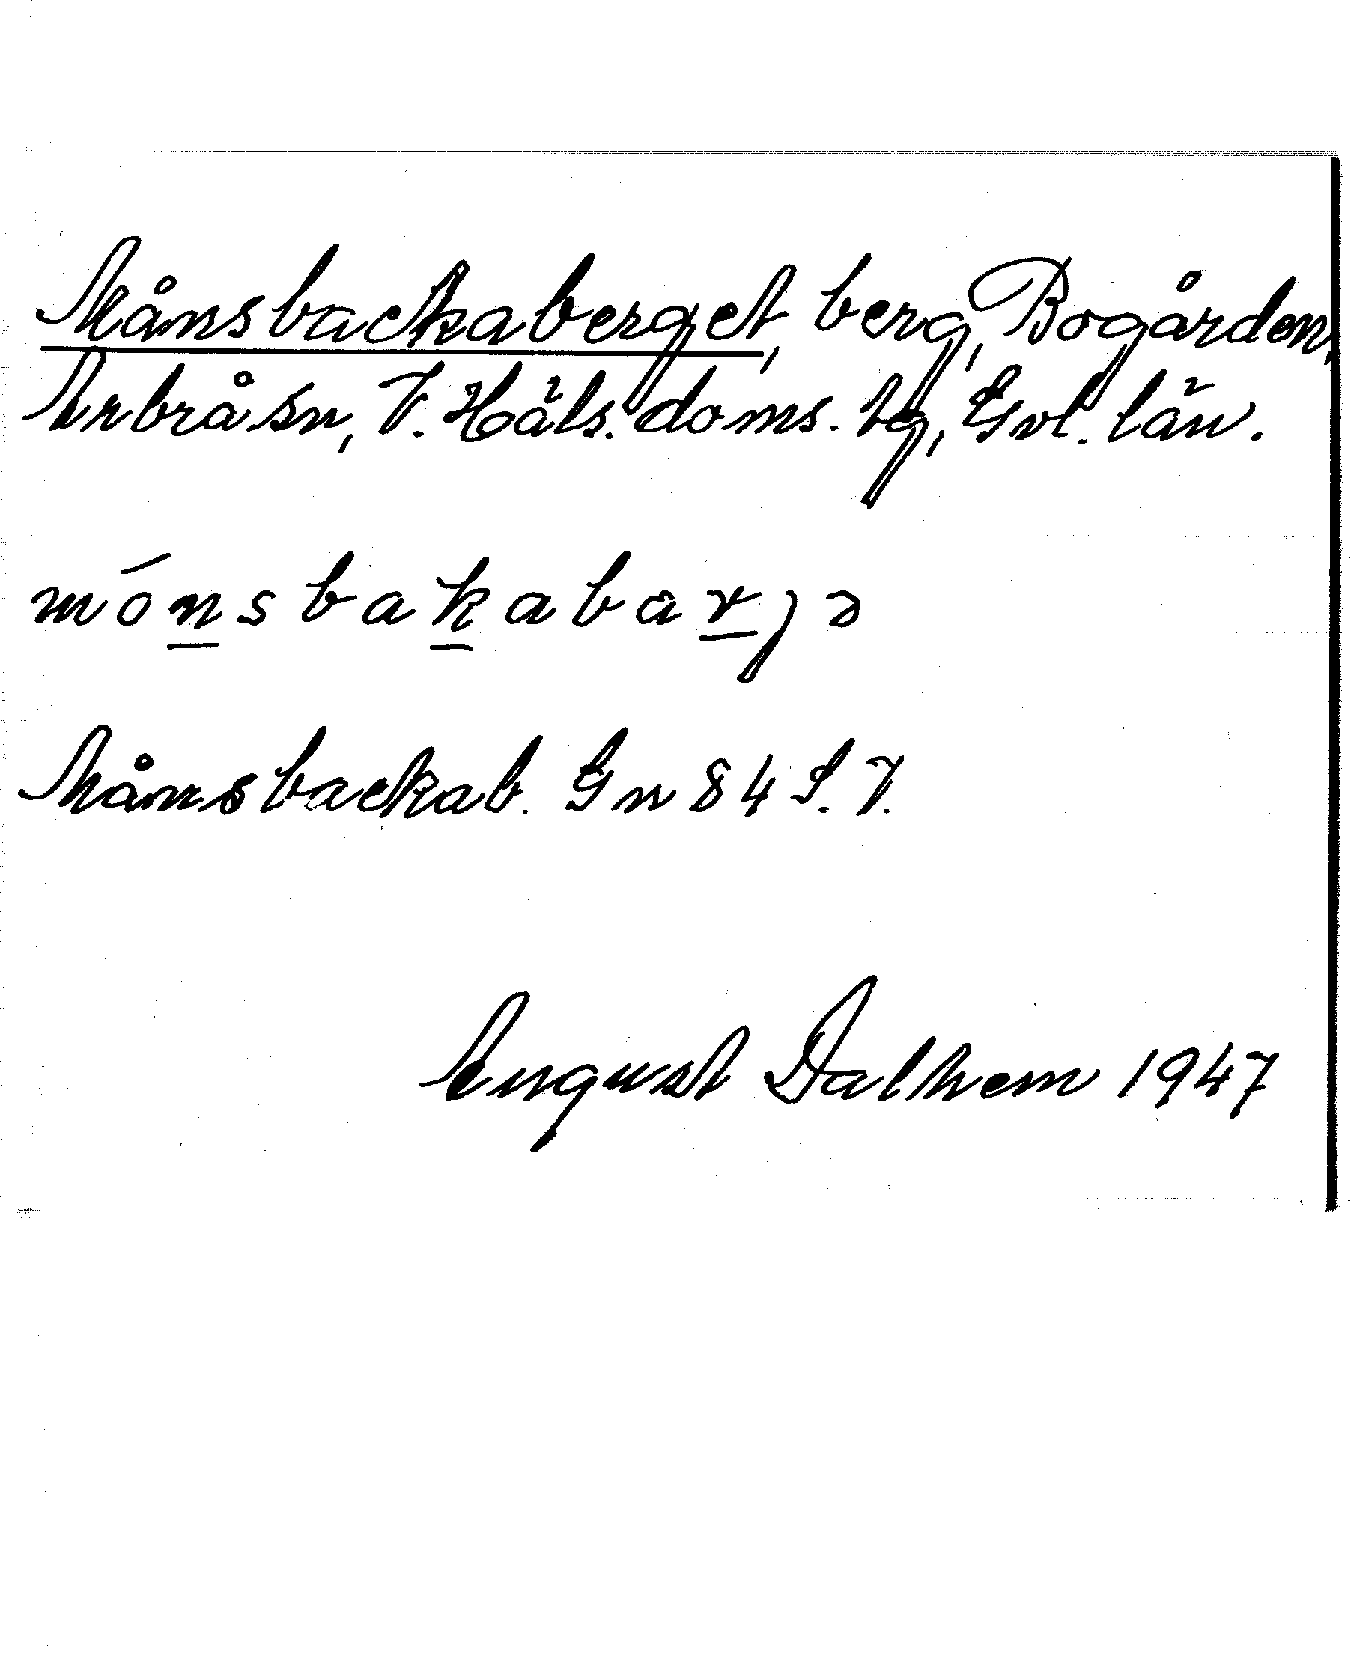 Månsbackaberget, berg, Bogården,
Arbrå sn, V. Häls. doms. tg, Gvl. län.
mónsbakabarjə
Månsbackab. Gn 84 S.V.
August Dalhem 1947